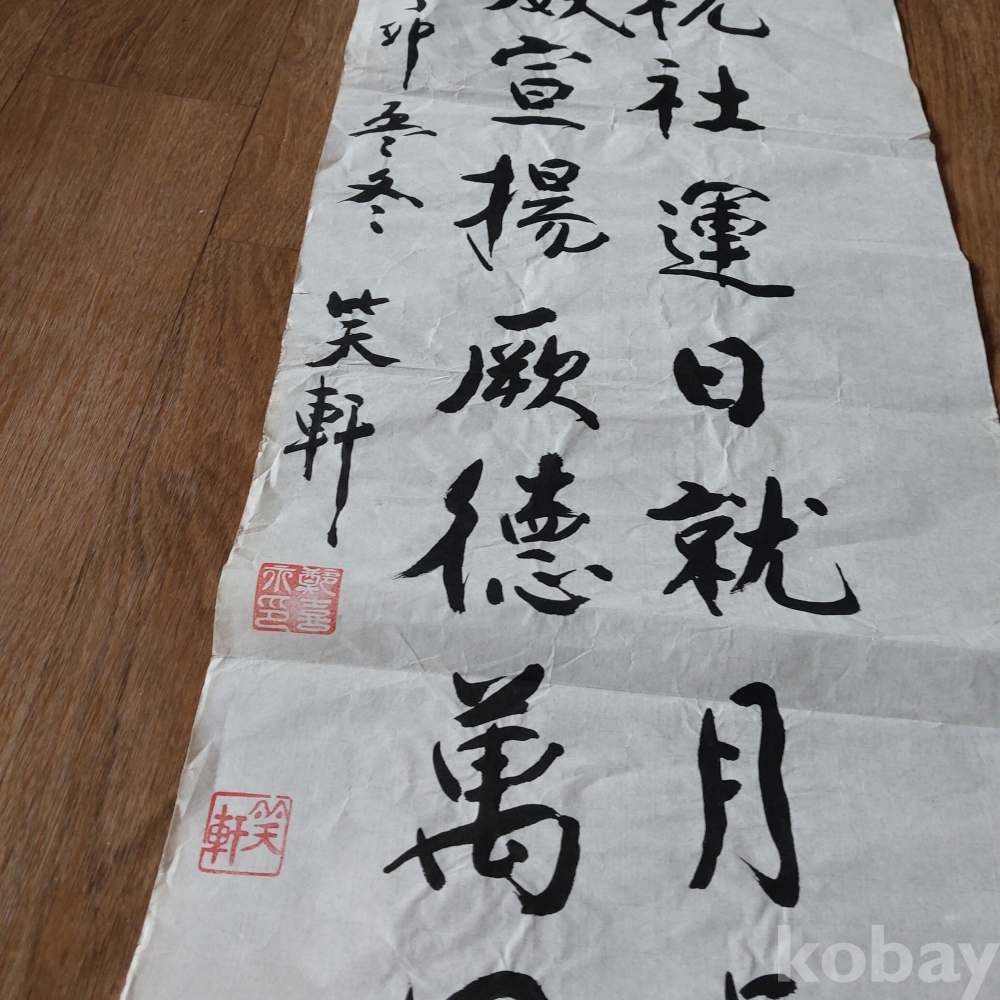 祝社運日就月
宣揚厥德萬
卯 冬 笑軒
鄭喜 印
笑軒
kobay